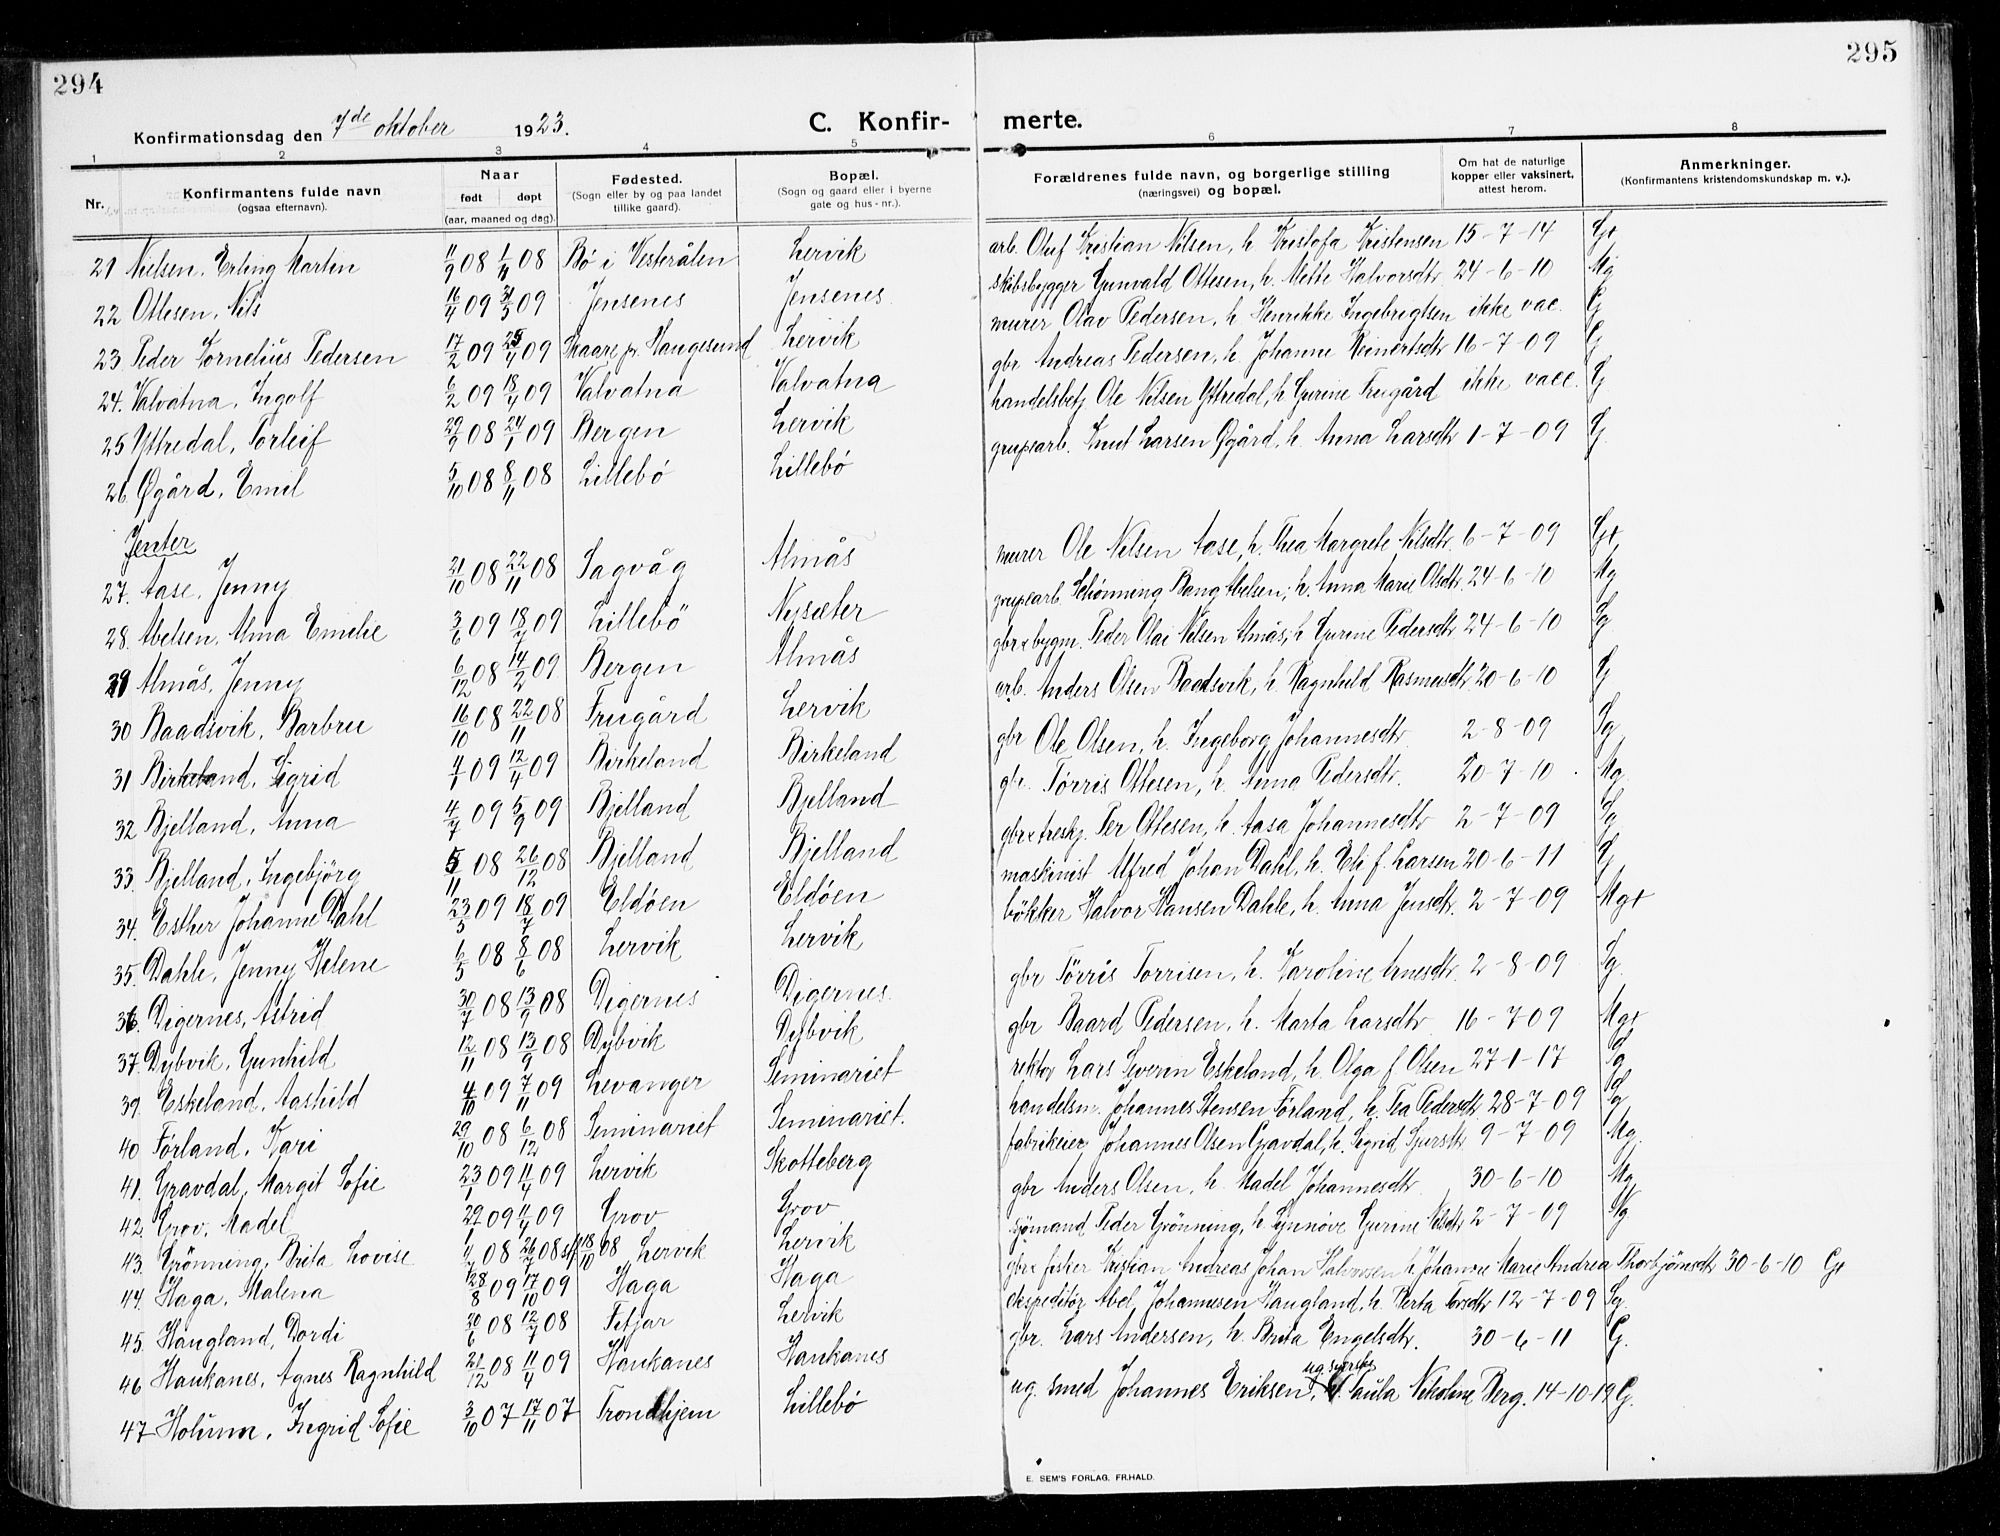 294
295
Konfirmationsdag den 7de oktober 1923.
C. Konfirmerte.
1 2 3 4 5 6 7 8
Nr. Konfirmantens fulde navn (ogsaa efternavn). Naar født døpt (aar, maaned og dag). Fødested. (Sogn eller by og paa landet tillike gaard). Bopæl. (Sogn og gaard eller i byerne gate og hus-nr.). Forældrenes fulde navn, og borgerlige stilling (næringsvei) og bopæl. Om hat de naturlige kopper eller vaksinert, attest herom. Anmerkninger. (Konfirmantens kristendomskundskap m. v.).
21 Nielsen, Erling Martin 11/9 08 1/11 08 Bø i Vesterålen Lervik arb. Oluf Kristian Nilsen, h. Kristofa Kristensen 15-7-14 G+
22 Ottesen, Nils 16/4 09 31/5 09 Jensenes Jensenes skibsbygger Gunvald Ottesen, h. Mette Halvorsdtr 24-6-10 Mg
23 Peder Kornelius Pedersen 17/2 09 25/4 09 Skaare pr. Haugesund Lervik murer Olav Pedersen, h. Henrikke Ingebrigtsen ikke vac. G
24. Valvatna, Ingolf 6/2 09 18/4 09 Valvatna Valvatna gbr Andreas Pedersen, h. Johanne Reinertsdtr 16-7-09 G
25 Yttredal, Torleif 29/9 08 24/1 09 Bergen Lervik handelsbetj Ole Nilsen Yttredal, h. Gurine Frugård ikke vacc. G
26. Øgård, Emil 5/10 08 8/11 08 Lillebø Lillebø grupearb. Knut Larsen Øgård, h. Anna Larsdtr 1-7-09 G
Jenter
27. Aase, Jenny 21/10 08 22/11 08 Sagvåg Almås murer Ole Nilsen Aase, h. Thea Margrete Nilsdtr. 6-7-09 G+
28. Abelsen, Alma Emelie 3/6 09 18/7 09 Lillebö Nysæter grupearb. Schønning Bang Abelsen, h. Anna Marie Olsdtr. 24-6-10 Mg
29 Almås, Jenny 6/12 08 14/2 09 Bergen Almås gbr & bygm. Peder Olai Nilsen Almås, h. Gurine Pedersdtr 24-6-10 Sg
30 Baadsvik, Barbru 16/10 08 22/11 08 Frugård Lervik arb. Anders Olsen Baadsvik, h. Ragnhild Rasmusdtr 20-6-10 G
31 Birkeland, Sigrid 4/1 09 12/4 09 Birkeland Birkeland gbr Ole Olsen, h. Ingeborg Johannesdtr 2-8-09 Sg
32 Bjelland, Anna 4/7 09 5/9 09 Bjelland Bjelland gbr. Tørris Ottesen, h. Anna Pedersdtr. 20-7-10 Mg
33. Bjelland, Ingebjörg 5/11 08 26/12 08 Bjelland Bjelland gbr & treskj. Per Ottesen, h. Aasa Johannesdtr 2-7-09 Sg
34. Esther Johanne Dahl 23/5 09 18/7 09 Eldøen Eldøen maskinist Alfred Johan Dahl, h. Eli f. Larsen 20-6-11 G
35. Dahle, Jenny Helene 6/5 08 8/6 08 Lervik Lervik bökker Halvor Hansen Dahle, h. Anna Jensdtr. 2-7-09 Mg+
36. Digernes, Astrid 30/7 08 13/9 08 Digernes Digernes. gbr Tørris Torrisen, h. Karoline Arnesdtr 2-8-09 Sg.
37. Dybvik, Gunhild 12/11 08 13/9 08 Dybvik Dybvik gbr Baard Pedersen, h. Marta Larsdtr 16-7-09 Mg+
39. Eskeland, Aashild 4/10 09 7/11 09 Levanger Seminariet rektor Lars Severin Eskeland, h. Olga f. Olsen 27-1-17 Sg
40 Förland, Kari 29/10 08 6/12 08 Seminariet Seminariet. handelsm. Johannes Stensen Förland, h. Tea Pedersdtr 28-7-09 Sg
41. Gravdal, Margit Sofie 23/1 09 11/4 09 Lervik Skotteberg fabrikeier Johannes Olsen Gravdal, h. Sigrid Sjursdtr 9-7-09 Mg.
42. Grov, Madel 29/1 09 11/4 09 Grov Grov gbr Anders Olsen, h. Madel Johannesdtr 30-6-10 Mg
43. Grönning, Brita Lovise 4/7 08 26/7 08 st. 18/10 08 Lervik Lervik sjømand Peder Grönning, h. Synnöve Gurine Nilsdtr 2-7-09 Ng
44. Haga, Malena 28/8 09 17/10 09 Haga Haga gbr & fisker Kristian Andreas Johan Halvorsen h. Johanne Marie Andrea Thorbjörnsdtr 30-6-10 G+
45. Haugland, Dordi 20/6 08 12/7 08 Fitjar Lervik ekspeditör Abel Johannesen Haugland, h. Berta Torsdtr 12-7-09 Sg
46 Haukanes, Agnes Ragnhild 21/12 08 11/4 09 Haukanes Haukanes gbr. Lars Andersen, h. Brita Engelsdtr. 30-6-11 G.
47 Holum, Ingrid Sofie 3/10 07 17/11 07 Trondhjem Lillebö ug. smed Johannes Eriksen, ug svorske Paula Nikoline Berg. 14-10-19 G.
E. SEM'S FORLAG, FR.HALD.